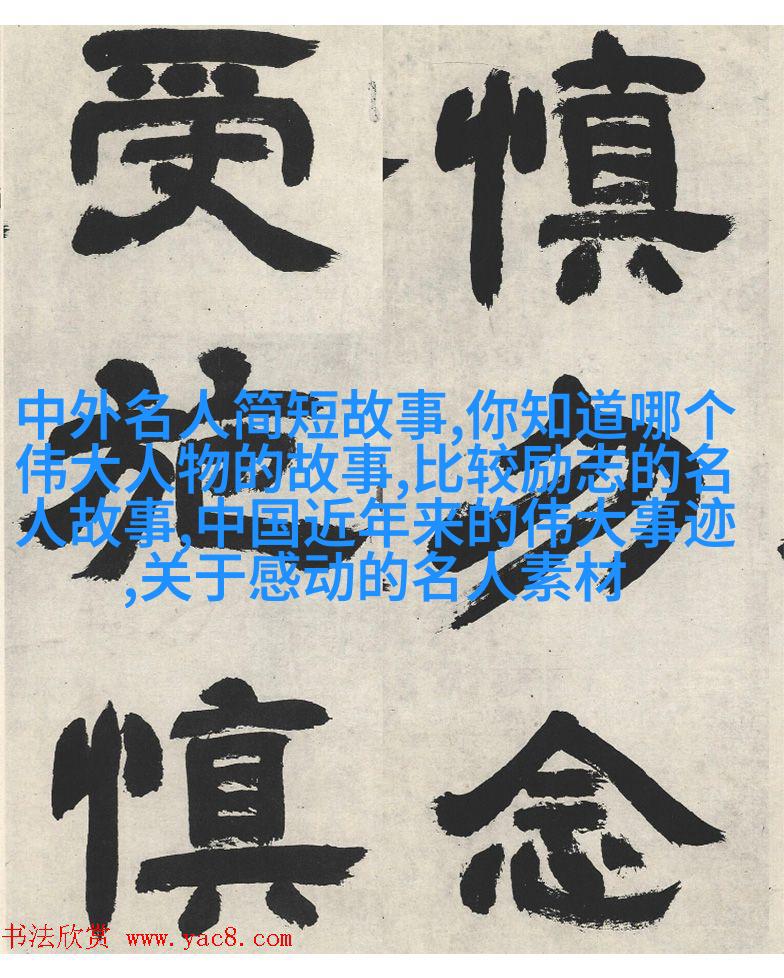 慎勿念
受施慎
中外名人简短故事,你知道哪个
伟大人物的故事,比较励志的名
人故事,中国近年来的伟大事迹
,关于感动的名人素材
书法欣赏 www.yac8.com